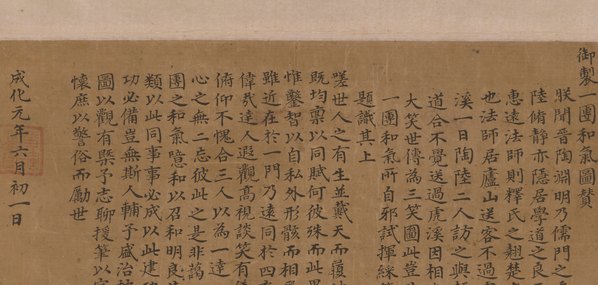 御製一團和氣圖贊
朕聞晉陶淵明乃儒門之
陸脩靜亦隱居學道之良
惠遠法師則釋氏之翹楚
也法師居廬山送客不過
溪一日陶陸二人訪之與
道合不覺送過虎溪因相
大笑世傳為三笑圖此豈
一團和氣所自邪試揮綵
題識其上
嗟世人之有生並戴天而履
既均稟以同賦何彼殊而此
惟鑿智以自私外形骸而相
雖近在於一門乃遠同於四
偉哉達人遐觀高視談笑有
俯仰不愧合三人以為一達
心之無二忘彼此之是非藹
團之和氣噫和以召和明良
類以此同事事必成以此建
功必備豈無斯人輔予盛治
圖以觀有槩予志聊援筆以
懷庶以警俗而勵世
成化元年六月初一日